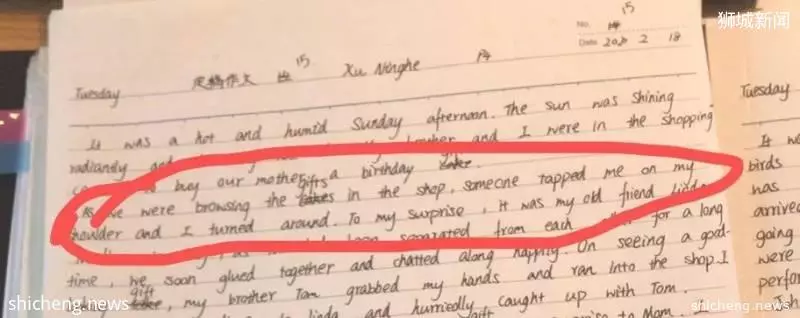 狮城新闻
No. 15
Date 2020 2 18
15
Tuesday 定稿作文 Xu Ninghe
It was a hot and humid Sunday afternoon. The sun was shining
radiantly and and I were in the shopping
to buy our mother a birthday gift
As we were browsing the gifts in the shop, someone tapped me on my
shoulder and I turned around. To my surprise, it was my old friend Linda
been separated from each for a long
time, we soon glued together and chatted along happily. On seeing a good
gift, my brother Tom grabbed my hands and ran into the shop. I
linda and hurriedly caught up with Tom.
gift to Mom.
Tuesday
It
birds
has
arrive
going
were
perfor
shicheng.news
shicheng.news